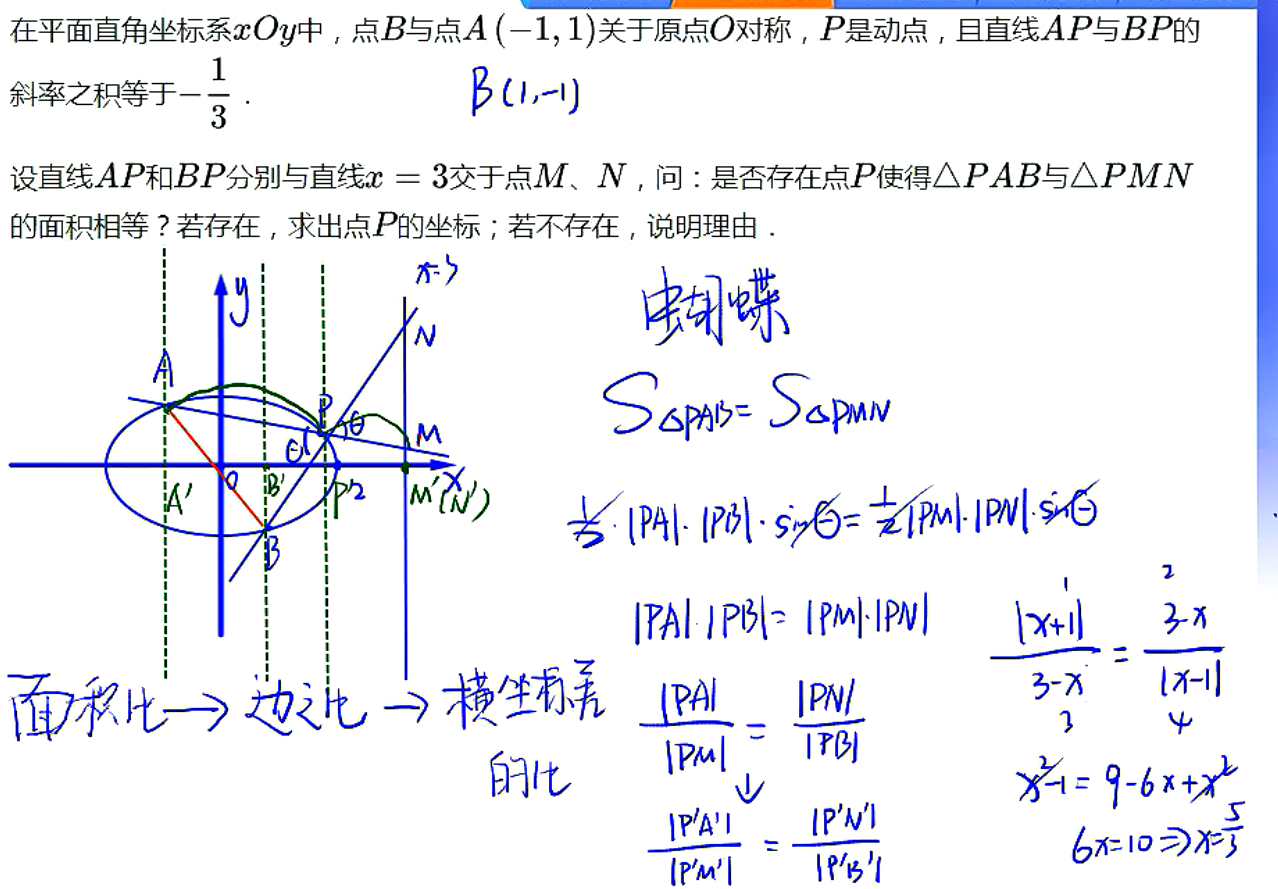 在平面直角坐标系xOy中，点B与点A(−1,1)关于原点O对称，P是动点，且直线AP与BP的
斜率之积等于−1/3．
B(1,-1)
设直线AP和BP分别与直线x = 3交于点M、N，问：是否存在点P使得△PAB与△PMN
的面积相等？若存在，求出点P的坐标；若不存在，说明理由．
x=3
y
N
A
P
θ
M
θ
x
O
A'
B'
P'
2
M'(N')
B
蝴蝶
S△PAB = S△PMN
1/2·|PA|·|PB|·sinθ = 1/2|PM|·|PN|·sinθ
|PA|·|PB| = |PM|·|PN|
|PA|/|PM| = |PN|/|PB|
↓
|P'A'|/|P'M'| = |P'N'|/|P'B'|
面积比 → 边之比 → 横坐标差
的比
1 2
|x+1|/3-x = 3-x/|x-1|
3 4
x²-1 = 9-6x+x²
6x=10 ⇒ x=5/3